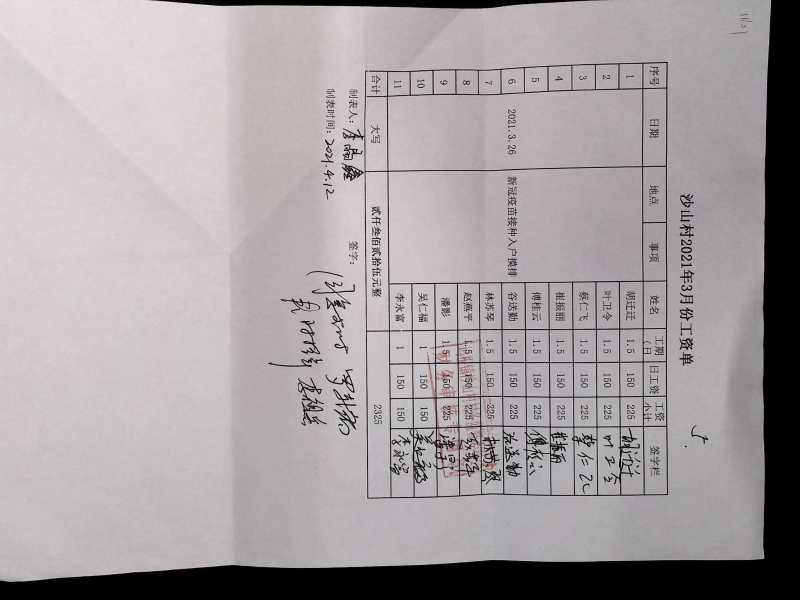 沙山村2021年3月份工资单
序号 日期 地点 事项 姓名 工期（日 日工资 工资小计 签字栏
1 胡迁迁 1.5 150 225
2 叶卫令 1.5 150 225 叶卫令
3 蔡仁飞 1.5 150 225 蔡仁飞
4 崔振丽 1.5 150 225 崔振丽
5 傅桂云 1.5 150 225 傅桂云
6 2021.3.26 新冠疫苗接种入户摸排 谷送勤 1.5 150 225 谷送勤
7 林苏琴 1.5 150 225 林苏琴
8 赵燕平 1.5 150 225 赵燕平
9 潘影 1.5 150 225 潘影
10 吴仁福 1 150 150 吴仁福
11 李永富 1 150 150 李永富
合计 大写 贰仟叁佰贰拾伍元整 2325
制表人： 签字：
制表时间：2021.4.12